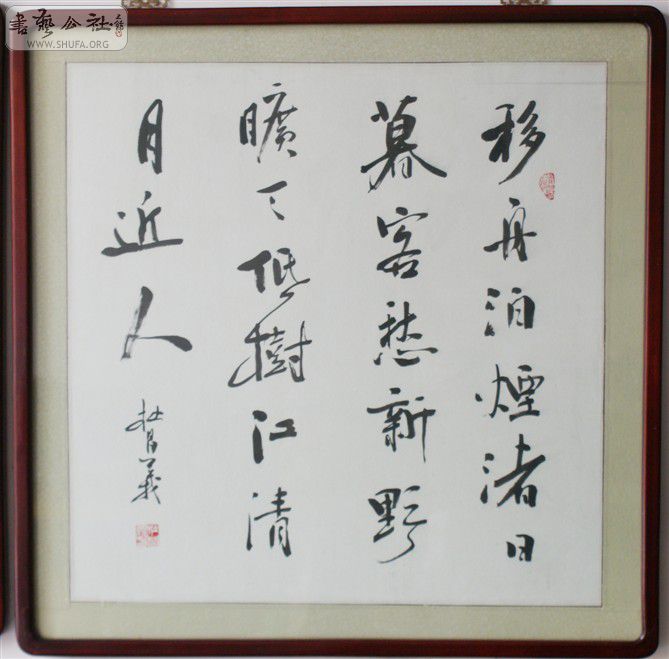 書藝公社
WWW.SHUFA.ORG
移舟泊煙渚日
暮客愁新野
曠天低樹江清
月近人